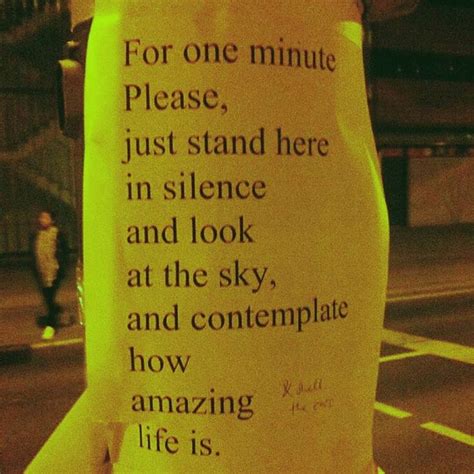 For one minute
Please,
just stand here
in silence
and look
at the sky,
and contemplate
how
amazing
life is.